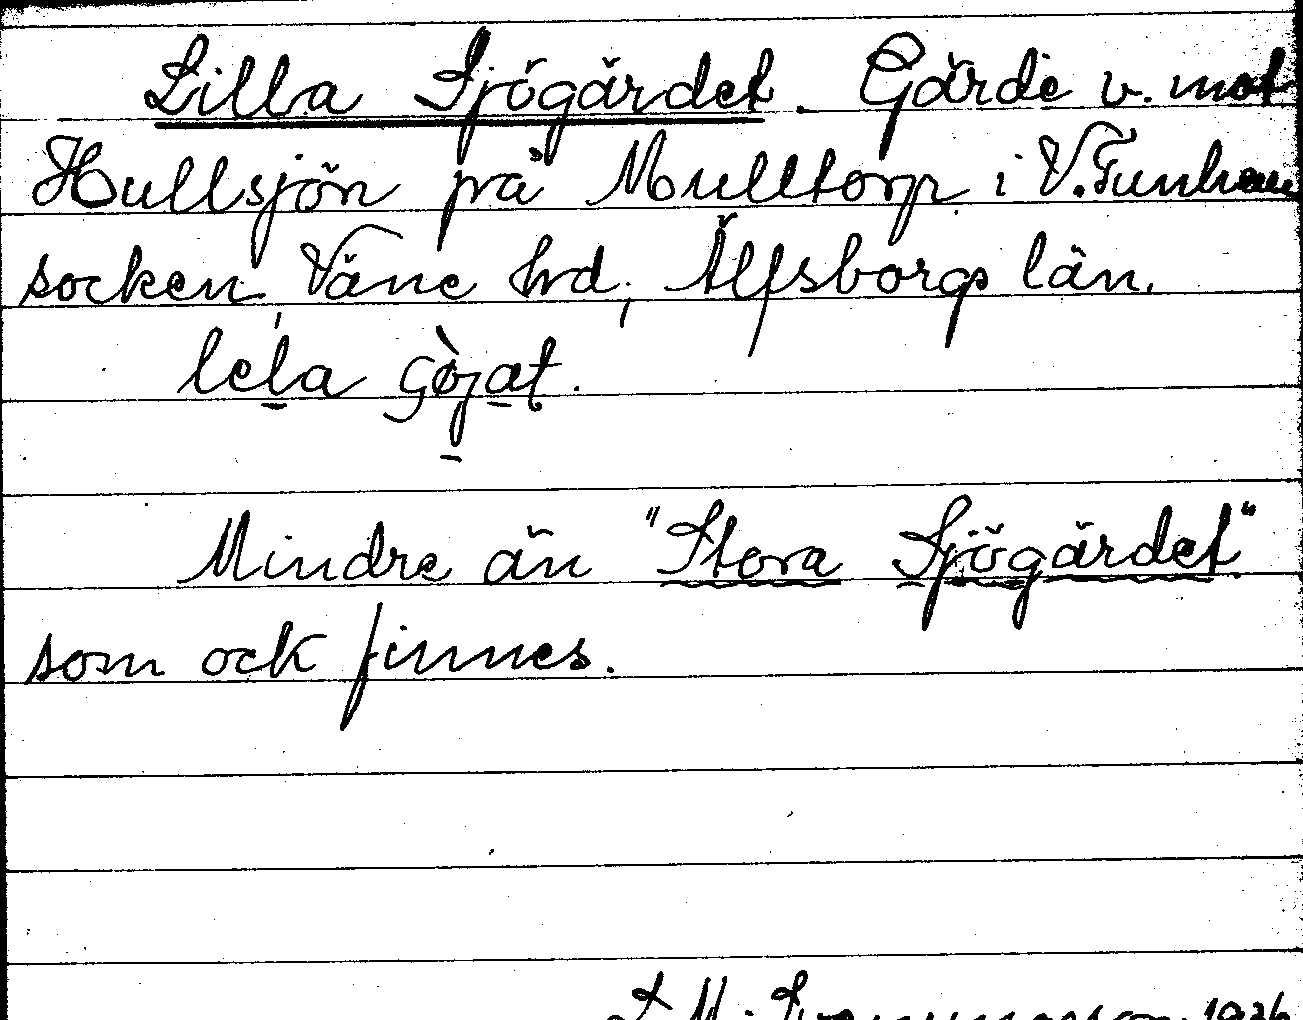 Lilla Sjögärdet. Gärde v. mot
Hullsjön på Mulltorp i V.Tunhem
socken, Väne hd, Älfsborgs län.
lela
Mindre än "Stora Sjögärdet"
som ock finnes.